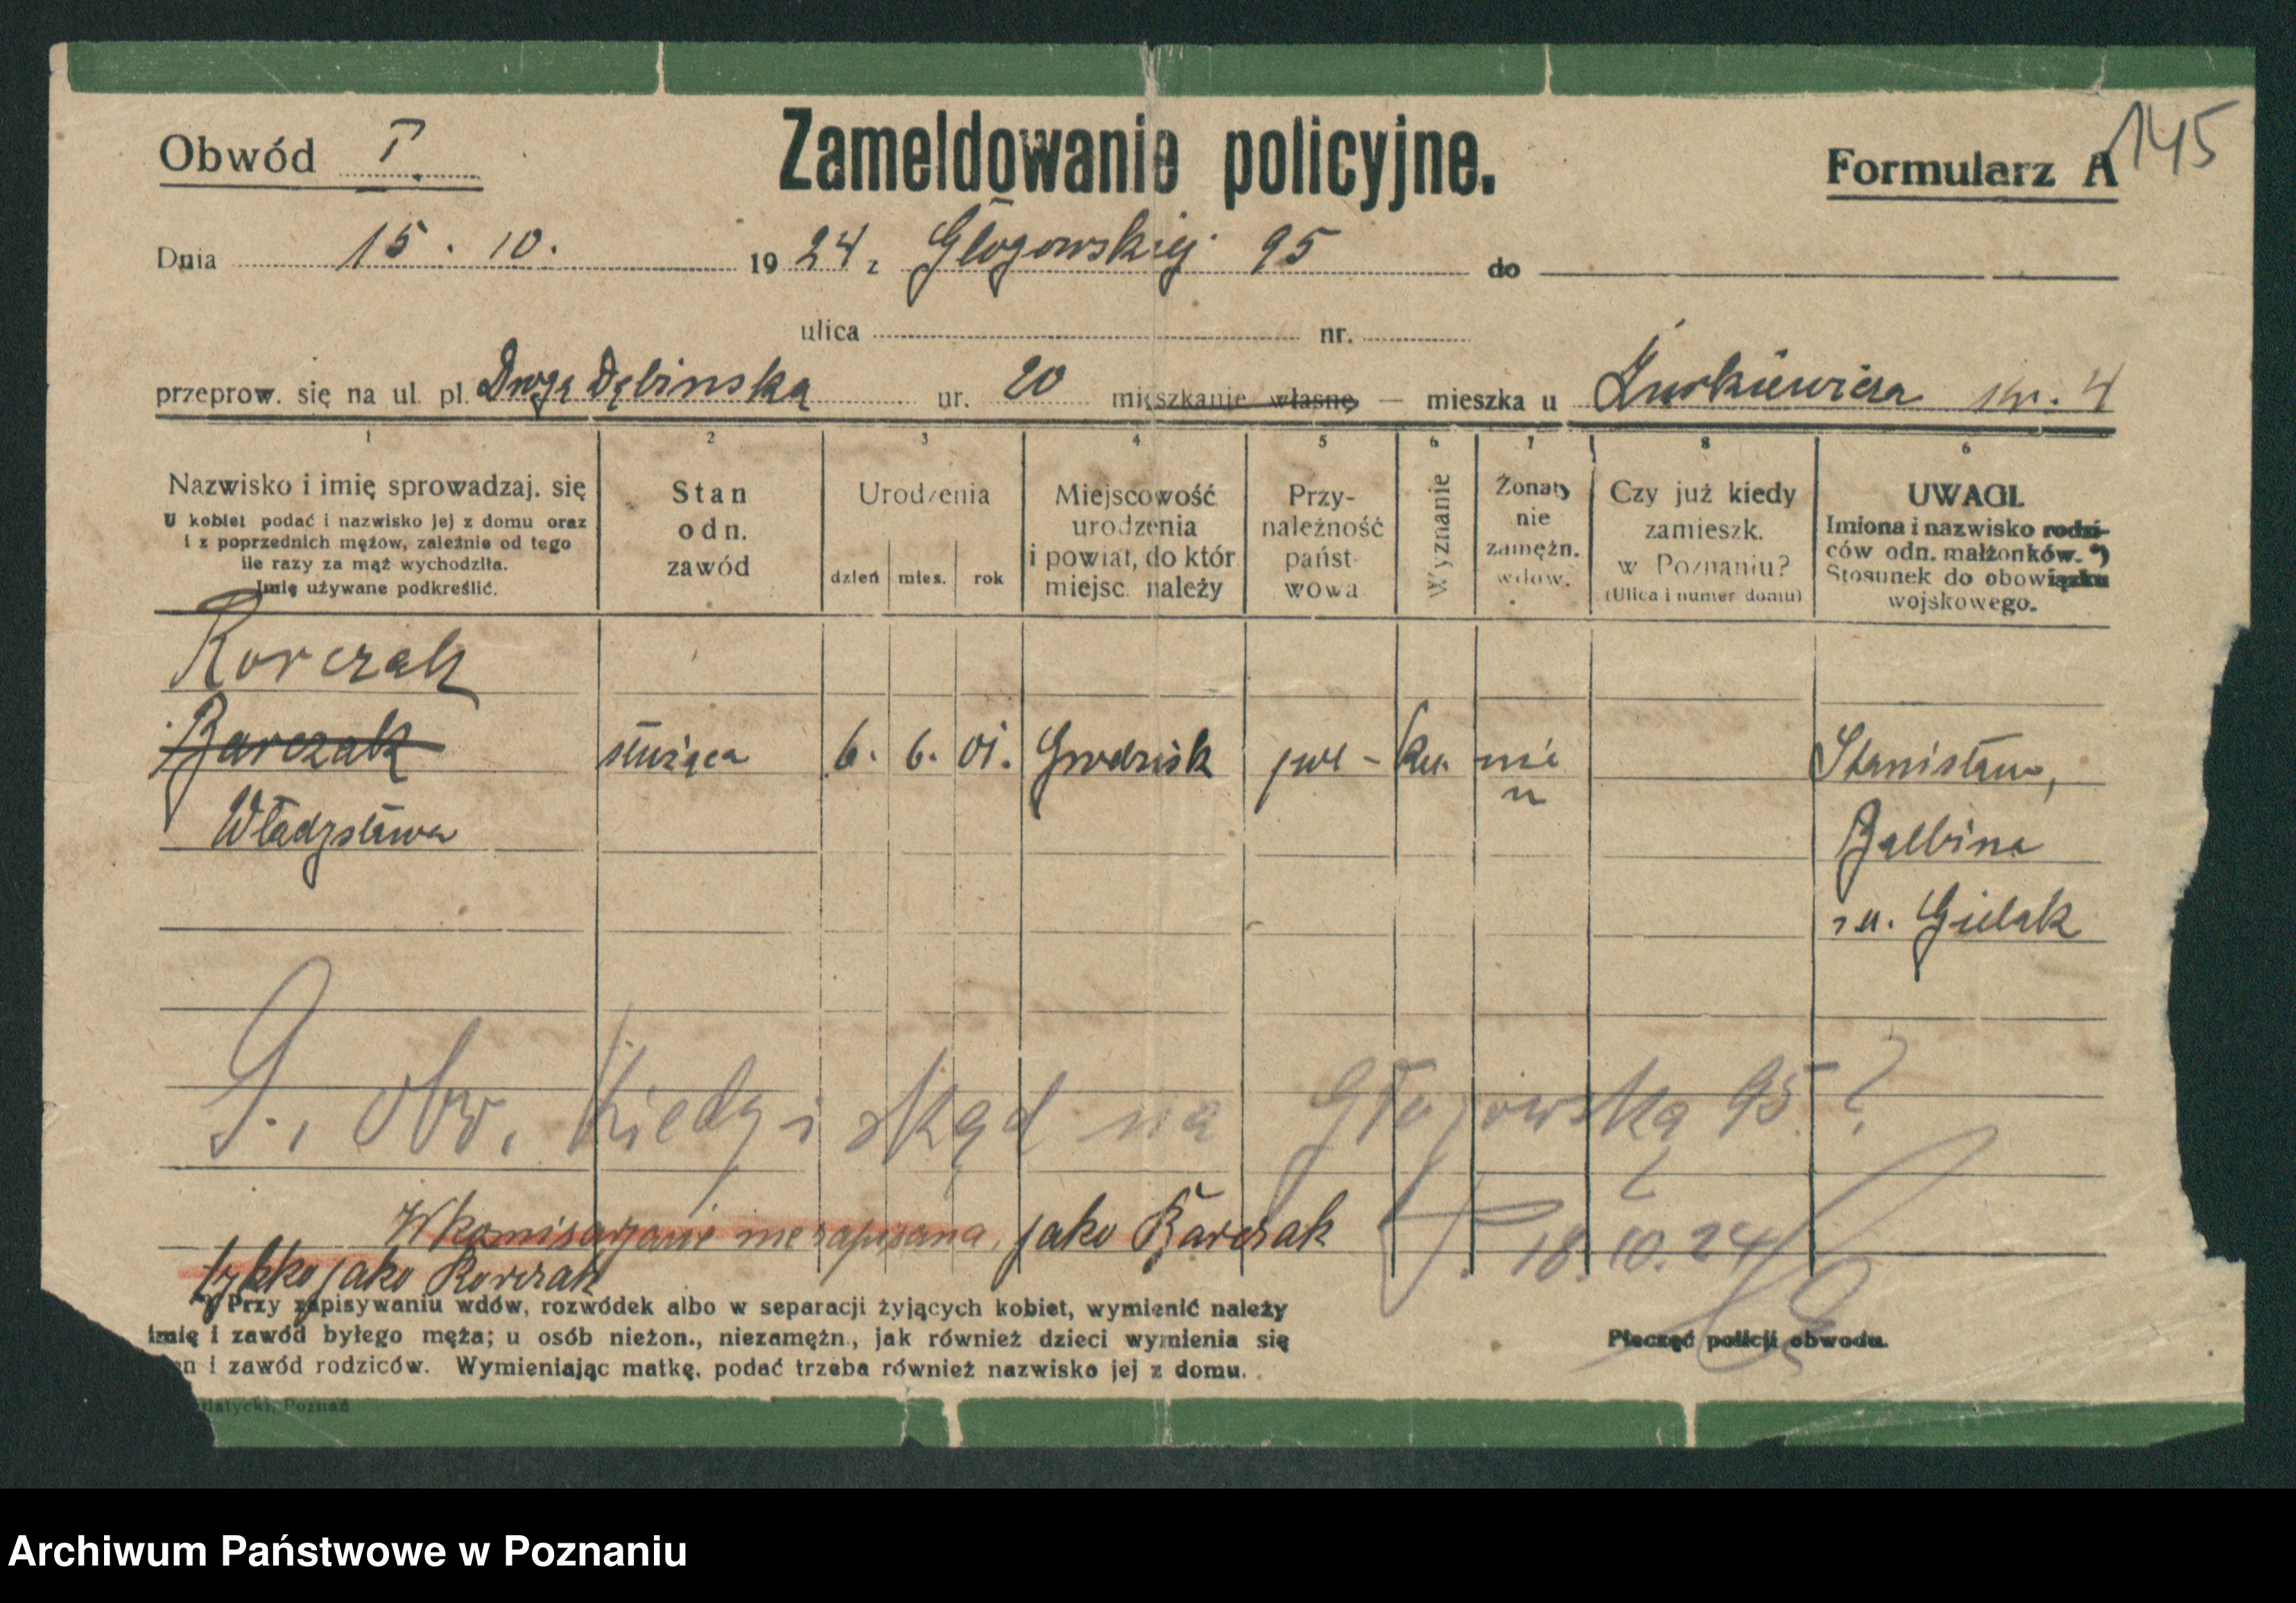 145
Obwód I. Zameldowanie policyjne. Formularz A
Dnia 15. 10. 1924 z Głogowskiej 95 do
ulica nr.
przeprow. się na ul. pl. Drogę Dębinską nr. 20 mieszkanie własne — mieszka u Żurkiewicza nr. 4
1 2 3 4 5 6 7 8 6
Nazwisko i imię sprowadzaj. się
U kobiet podać i nazwisko jej z domu oraz
i z poprzednich mężow, zależnie od tego
ile razy za mąż wychodziła.
Imię używane podkreślić.
Stan
odn.
zawód
Urodzenia
dzień mies. rok
Miejscowość
urodzenia
i powiat, do któr
miejsc. należy
Przy-
należność
państ-
wowa
Wyznanie
Żonaty
nie
zamężn.
wdow.
Czy już kiedy
zamieszk.
w Poznaniu?
(Ulica i numer domu)
UWAGI.
Imiona i nazwisko rodzi-
ców odn. małżonków. *)
Stosunek do obowiązku
wojskowego.
Korczak
Barczak służąca 6. 6. 01. Grodzisk pol - kat. nie Stanisław,
Władysława Balbina
Gielak
I. obw. kiedy i skąd na Głogowską 95?
W komisarjacie nie zapisana, jako Barczak
tylko jako Korczak
18.10.24
*) Przy zapisywaniu wdów, rozwódek albo w separacji żyjących kobiet, wymienić należy
imię i zawód byłego męża; u osób nieżon., niezamężn., jak również dzieci wymienia się
an i zawód rodziców. Wymieniając matkę, podać trzeba również nazwisko jej z domu.
Pieczęć policji obwodu.
tiatycki, Poznań
Archiwum Państwowe w Poznaniu